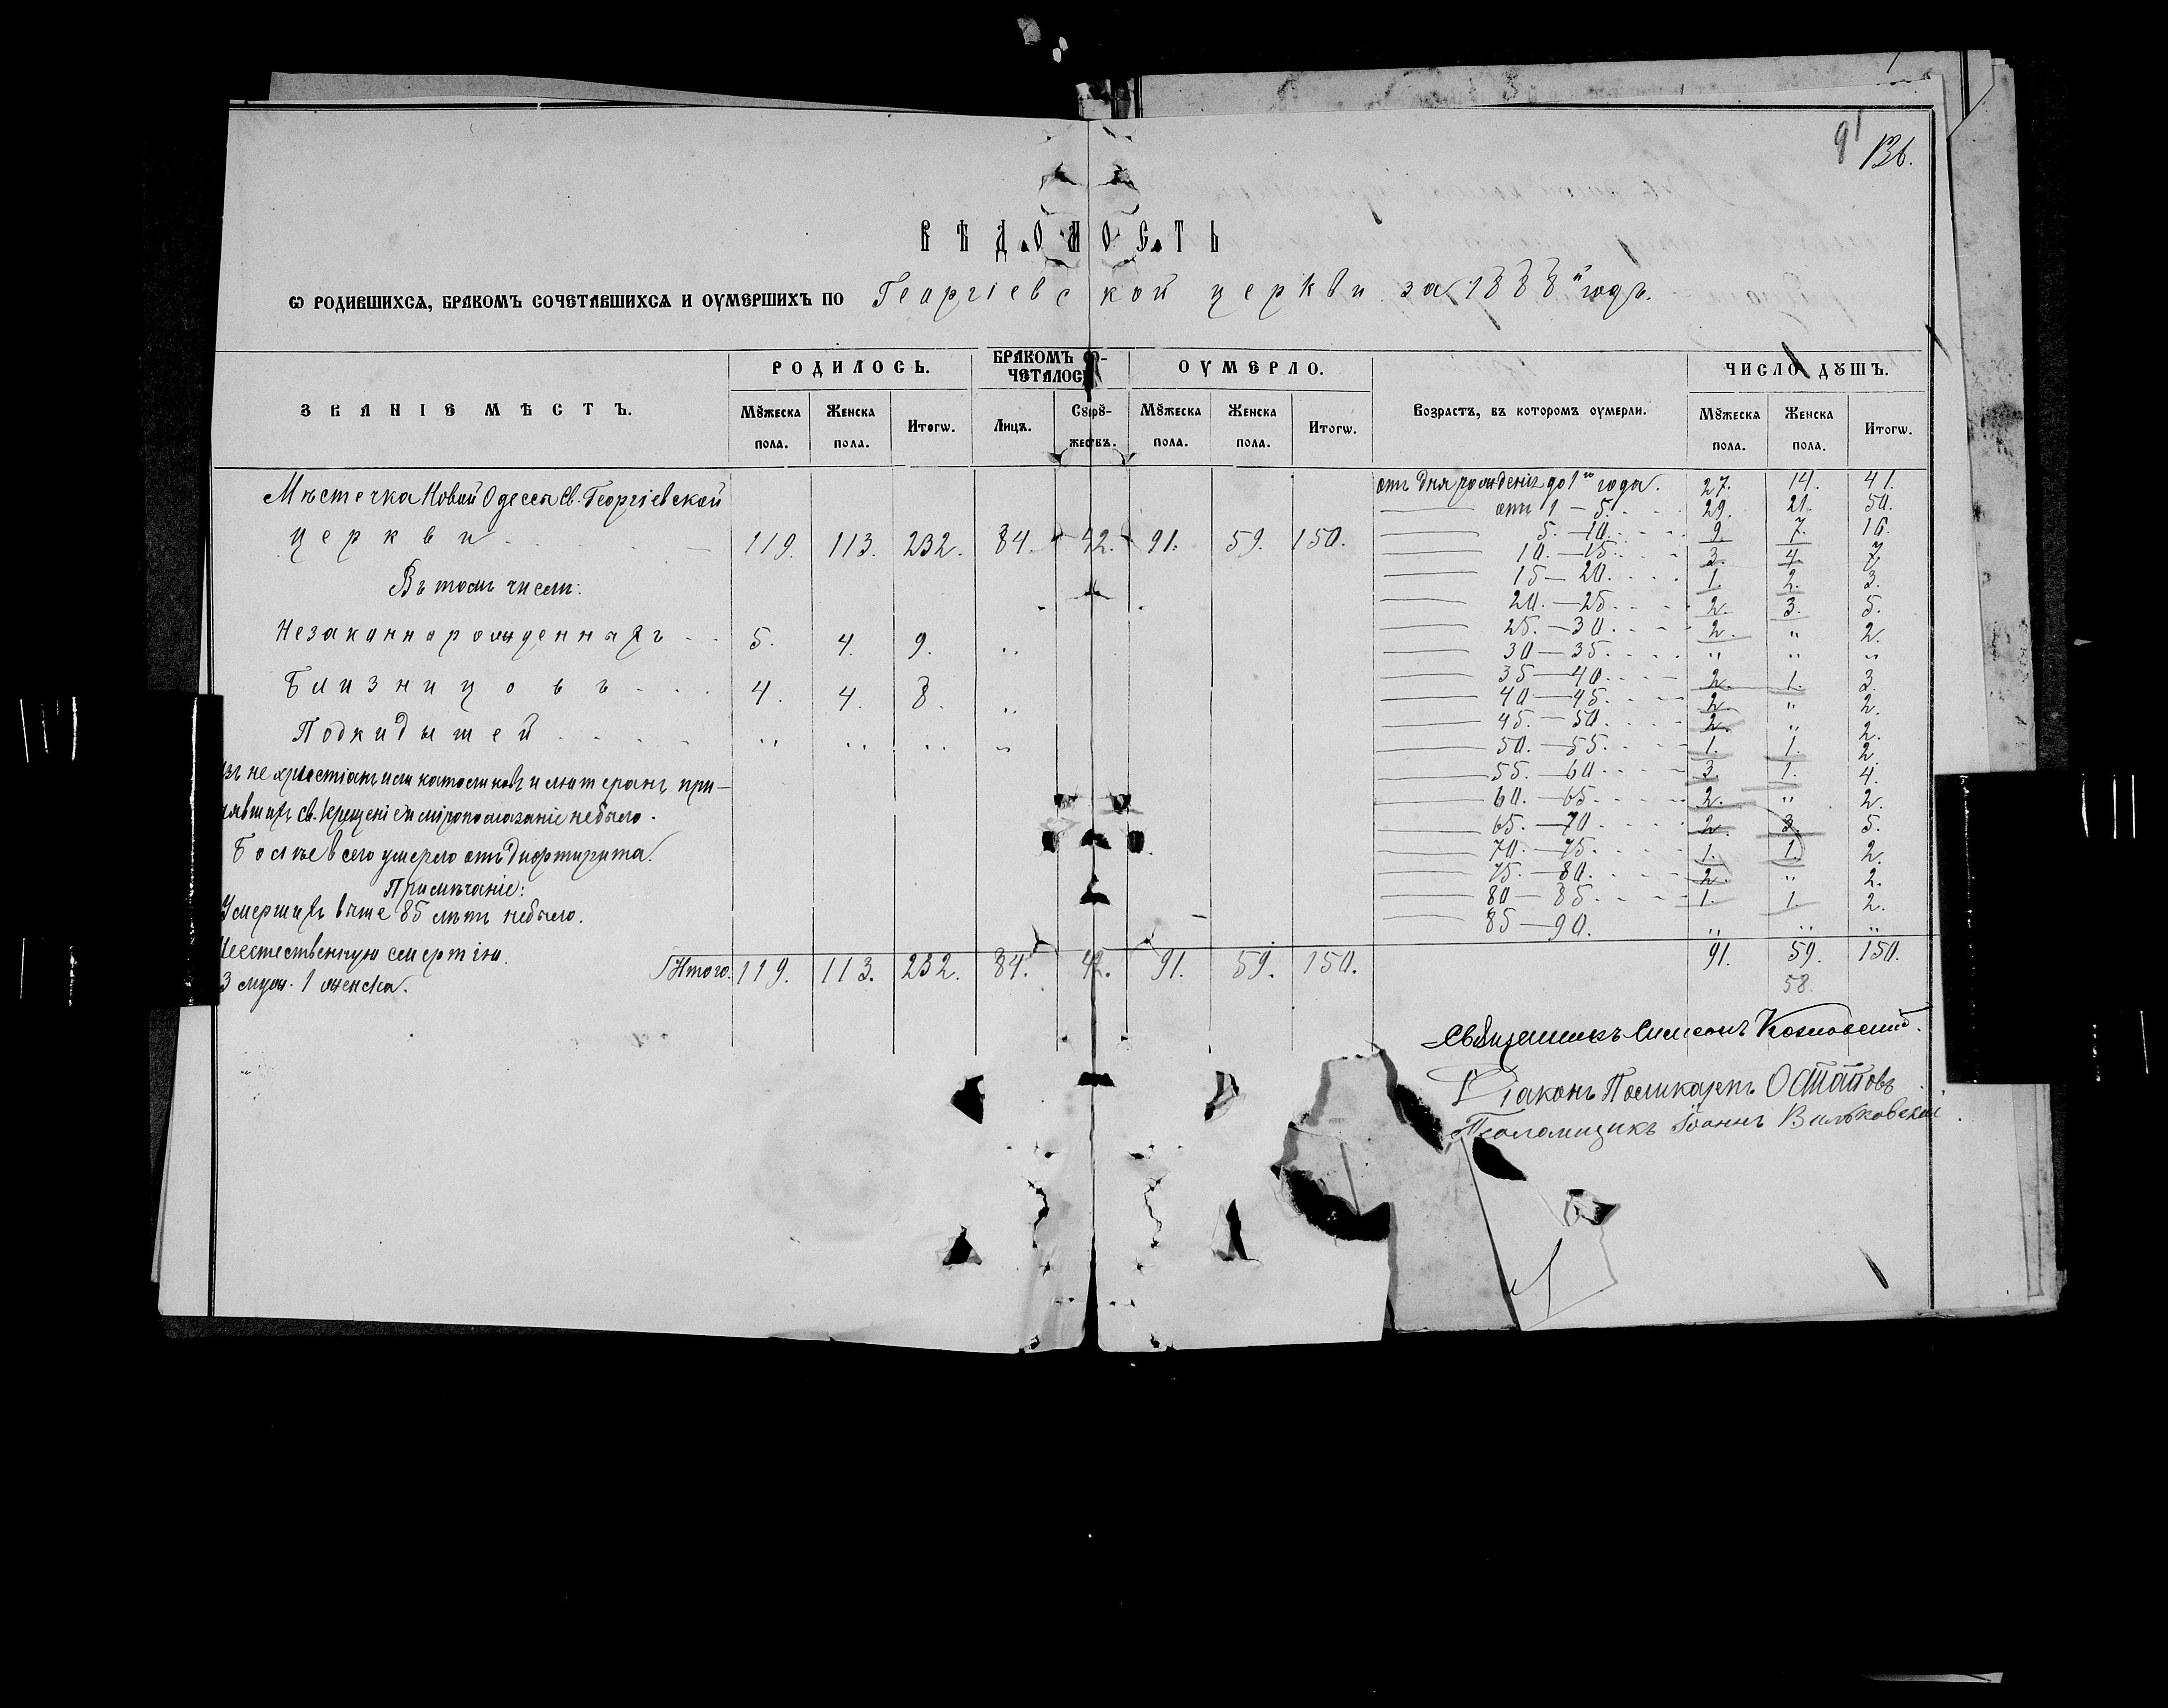 91
136.
ВѢДОМОСТЬ
Ѡ РОДИВШИХСѦ, БРАКОМЪ СОЧЕТАВШИХСѦ И ОУМЕРШИХЪ ПО Георгіевской церкви за 1888й годъ.
ЗВАНІЕ МѢСТЪ. РОДИЛОСЬ. БРАКОМЪ СО- ЧЕТАЛОСЬ ОУМЕРЛО. Возрастъ, въ которомъ оумерли. ЧИСЛО ДꙊШЪ.
Мꙋжеска пола. Женска пола. Итогѡ. Лицъ. Сꙋпрꙋ- жествъ. Мꙋжеска пола. Женска пола. Итогѡ. Мꙋжеска пола. Женска пола. Итогѡ.
Мѣстечка Новой Одессы Св. Георгіевской
церкви 119. 113. 232. 84. 42. 91. 59. 150.
Въ томъ числѣ:
Незаконнорожденныхъ 5. 4. 9. "
Близнецовъ 4. 4. 8. "
Подкидышей " " " "
Изъ не христіанъ или католиковъ и лютеранъ при-
нявшихъ св. Крещеніе и мѵропомазаніе небыло.
Болѣе всего умерло отъ дифтирита.
Примѣчаніе:
Умершихъ выше 85 лѣтъ небыло.
Неестественную смертію.
3 муж. 1 женска.
Итого. 119. 113. 232. 84. 42. 91. 59. 150.
отъ дня рожденія до 1го года. 27. 14. 41.
отъ 1 — 5. 29. 21. 50.
5. — 10. 9. 7. 16.
10. — 15. 3. 4. 7.
15 — 20. 1. 2. 3.
20. — 25. 2. 3. 5.
25. — 30. 2. " 2.
30 — 35. " " "
35 — 40. 2. 1. 3.
40 — 45. 2. " 2.
45. — 50. 2. " 2.
50. — 55. 1. 1. 2
55. — 60. 3. 1. 4.
60. — 65. 2. " 2.
65. — 70. 2. 3. 5.
70. — 75. 1. 1. 2.
75. — 80. 2. " 2.
80 — 85. 1. 1. 2.
85 — 90. " " "
91. 59. 150.
58.
Священникъ Симеонъ Козловскій.
Діаконъ Поликарпъ Остаповъ
Псаломщикъ Іоаннъ Вильковскій.